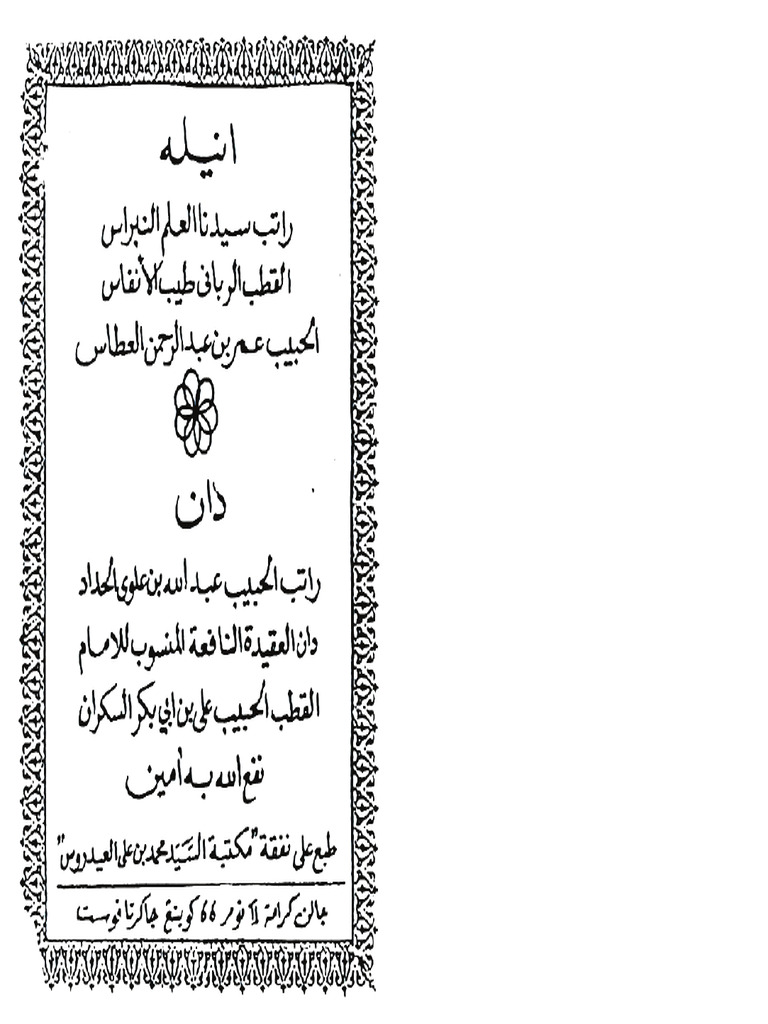 انيله
راتب سيدنا العلم النبراس
القطب الرباني طيب الأنفاس
الحبيب عمر بن عبد الرحمن العطاس
دان
راتب الحبيب عبد الله بن علوى الحداد
دان العقيدة النافعة المنسوب للامام
القطب الحبيب على بن ابي بكر السكران
نفع الله به أمين
طبع على نفقة "مكتبة السَّيّد محمد بن على العيدروس"
جالن كرامة II نومر ٦٦ كويتڠ جاكرتا فوست